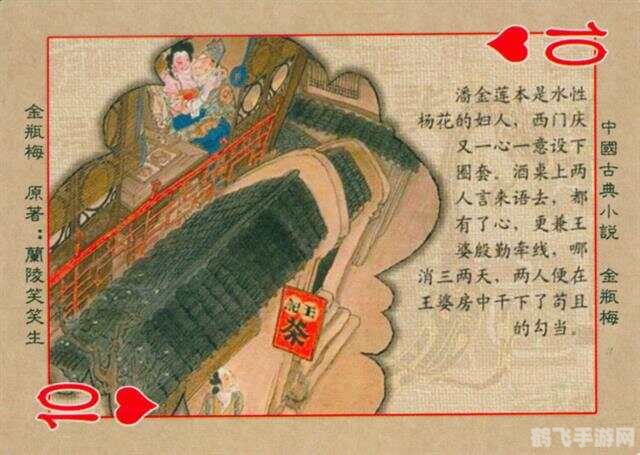 10
金瓶梅 原著：蘭陵笑笑生
潘金莲本是水性
杨花的妇人，西门庆
又一心一意设下
圈套。酒桌上两
人言来语去，都
有了心，更兼王
婆殷勤牵线，哪
消三两天，两人便在
王婆房中干下了苟且
的勾当。
中國古典小説 金瓶梅
王記
茶
10
鹤飞手游网